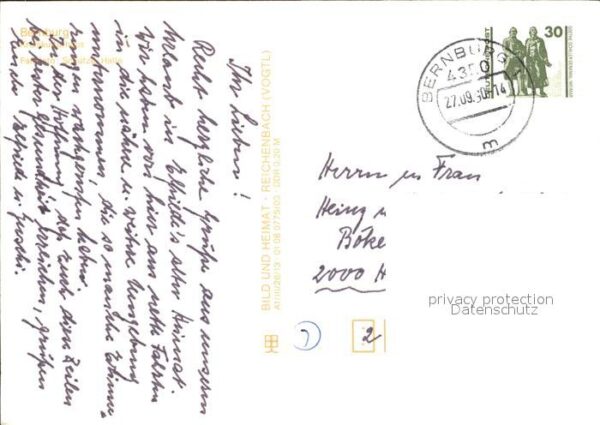 Ihr Lieben!
Recht herzliche Grüße aus unserem
Urlaub in Elfriede's alter Heimat.
Wir haben von hier aus nette Fahrten
in die nähere u. weitere Umgebung
unternommen, die so manche Erinne-
rungen wachgerufen haben.
In der Hoffnung, daß Euch diese Zeilen
bei bester Gesundheit erreichen, grüßen
Elfriede u.
Bernburg
BILD UND HEIMAT · REICHENBACH (VOGTL)
A1/III/26/13 01 08 0775/03 DDR 0,20 M
BERNBURG
4350
27.09.90-14
m
30
Herrn u. Frau
Heinz u
Böke
2000 H
2
privacy protection
Datenschutz